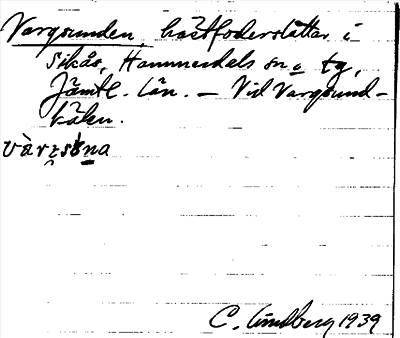 Vargsunden höstfoderslåttar i
Sikås, Hammerdals sn o tg,
Jämtl. län. — Vid Vargsund-
bäcken.
C. Lindberg 1939